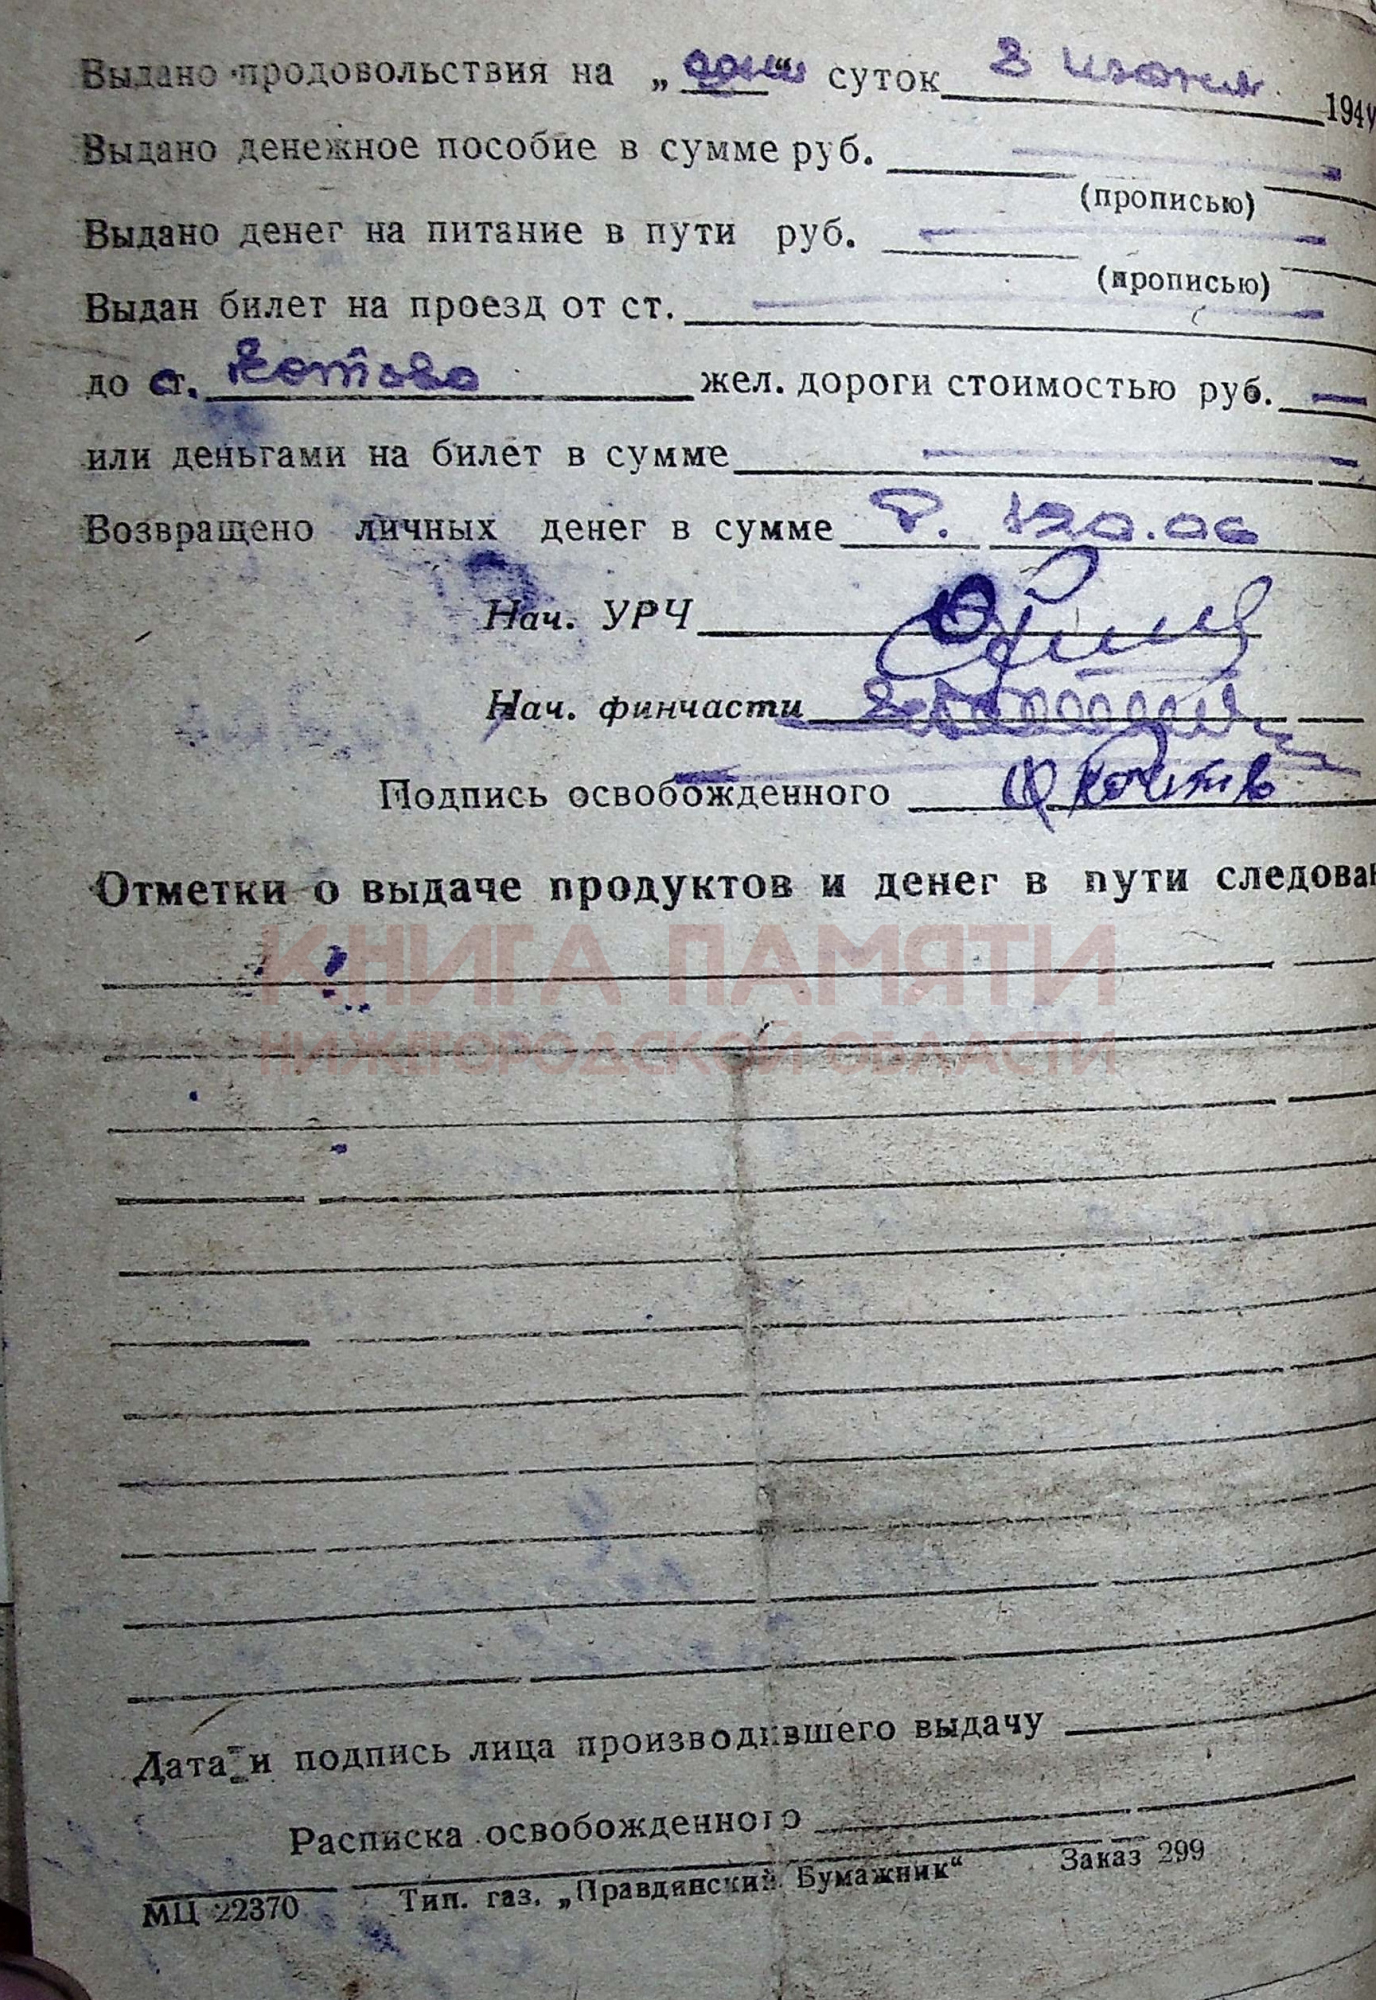 Выдано продовольствия на „одни“ суток 3 июня 194
Выдано денежное пособие в сумме руб.
(прописью)
Выдано денег на питание в пути руб.
(прописью)
Выдан билет на проезд от ст.
до ст. жел. дороги стоимостью руб.
или деньгами на билет в сумме
Возвращено личных денег в сумме р. 120.06
Нач. УРЧ
Нач. финчасти
Подпись освобожденного
Отметки о выдаче продуктов и денег в пути следован
КНИГА ПАМЯТИ
НИЖЕГОРОДСКОЙ ОБЛАСТИ
Дата и подпись лица производившего выдачу
Расписка освобожденного
МЦ 22370 Тип. газ. „Правдинский Бумажник“ Заказ 299